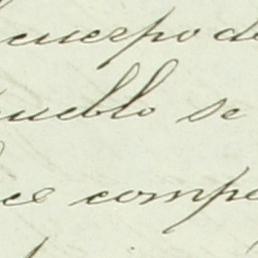 cuerpo de
pueblo se
ce compo